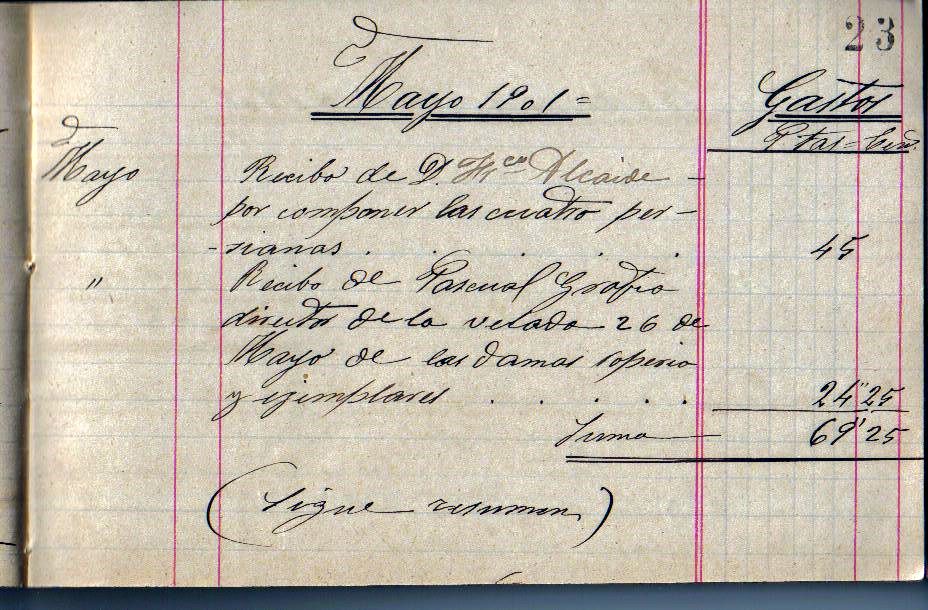 23
Mayo 1901=
Gastos
Ptas=Cén.
Mayo
Recibo de D. Fr.co Alcaide -
por componer las cuatro per-
-sianas . . . . . 45
" Recibo de Pascual Grafia
director de la velada 26 de
Mayo de las damas roperia
y ejemplares . . . . . 24"25
Suma 69"25
(Sigue resumen)